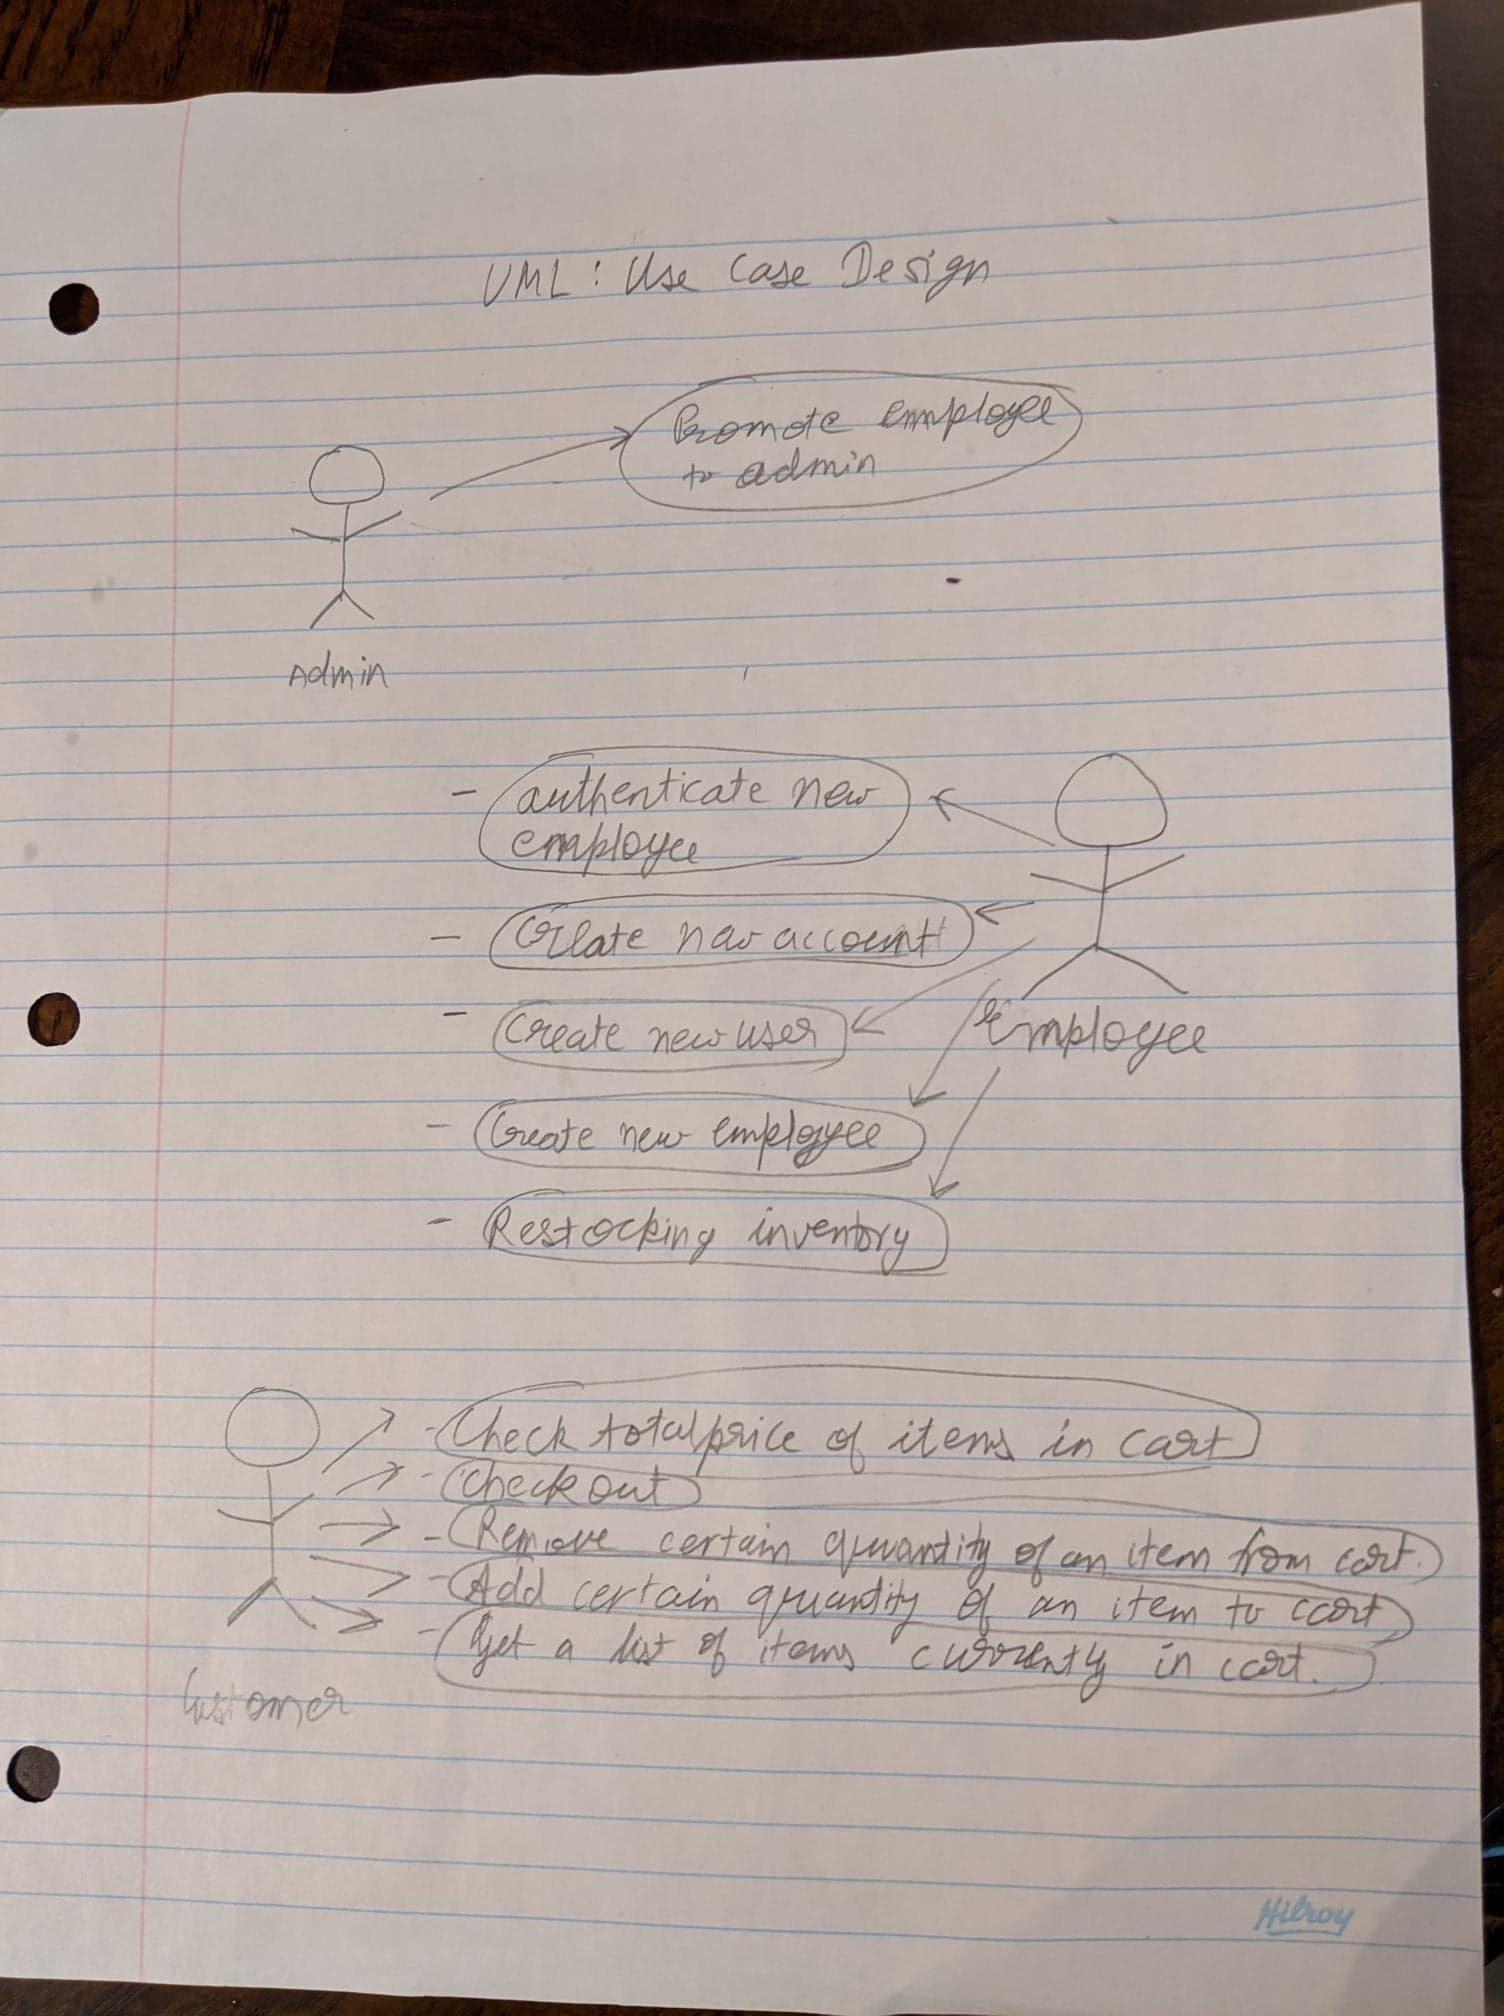 UML: Use Case Design
Promote employee
to admin
Admin
- authenticate new
employee
- Create new account
- Create new user
Employee
- Create new employee
- Restocking inventory
- Check total price of items in cart
- Check out
- Remove certain quantity of an item from cart.
- Add certain quantity of an item to cart
- Get a list of items currently in cart.
Customer
Hilroy